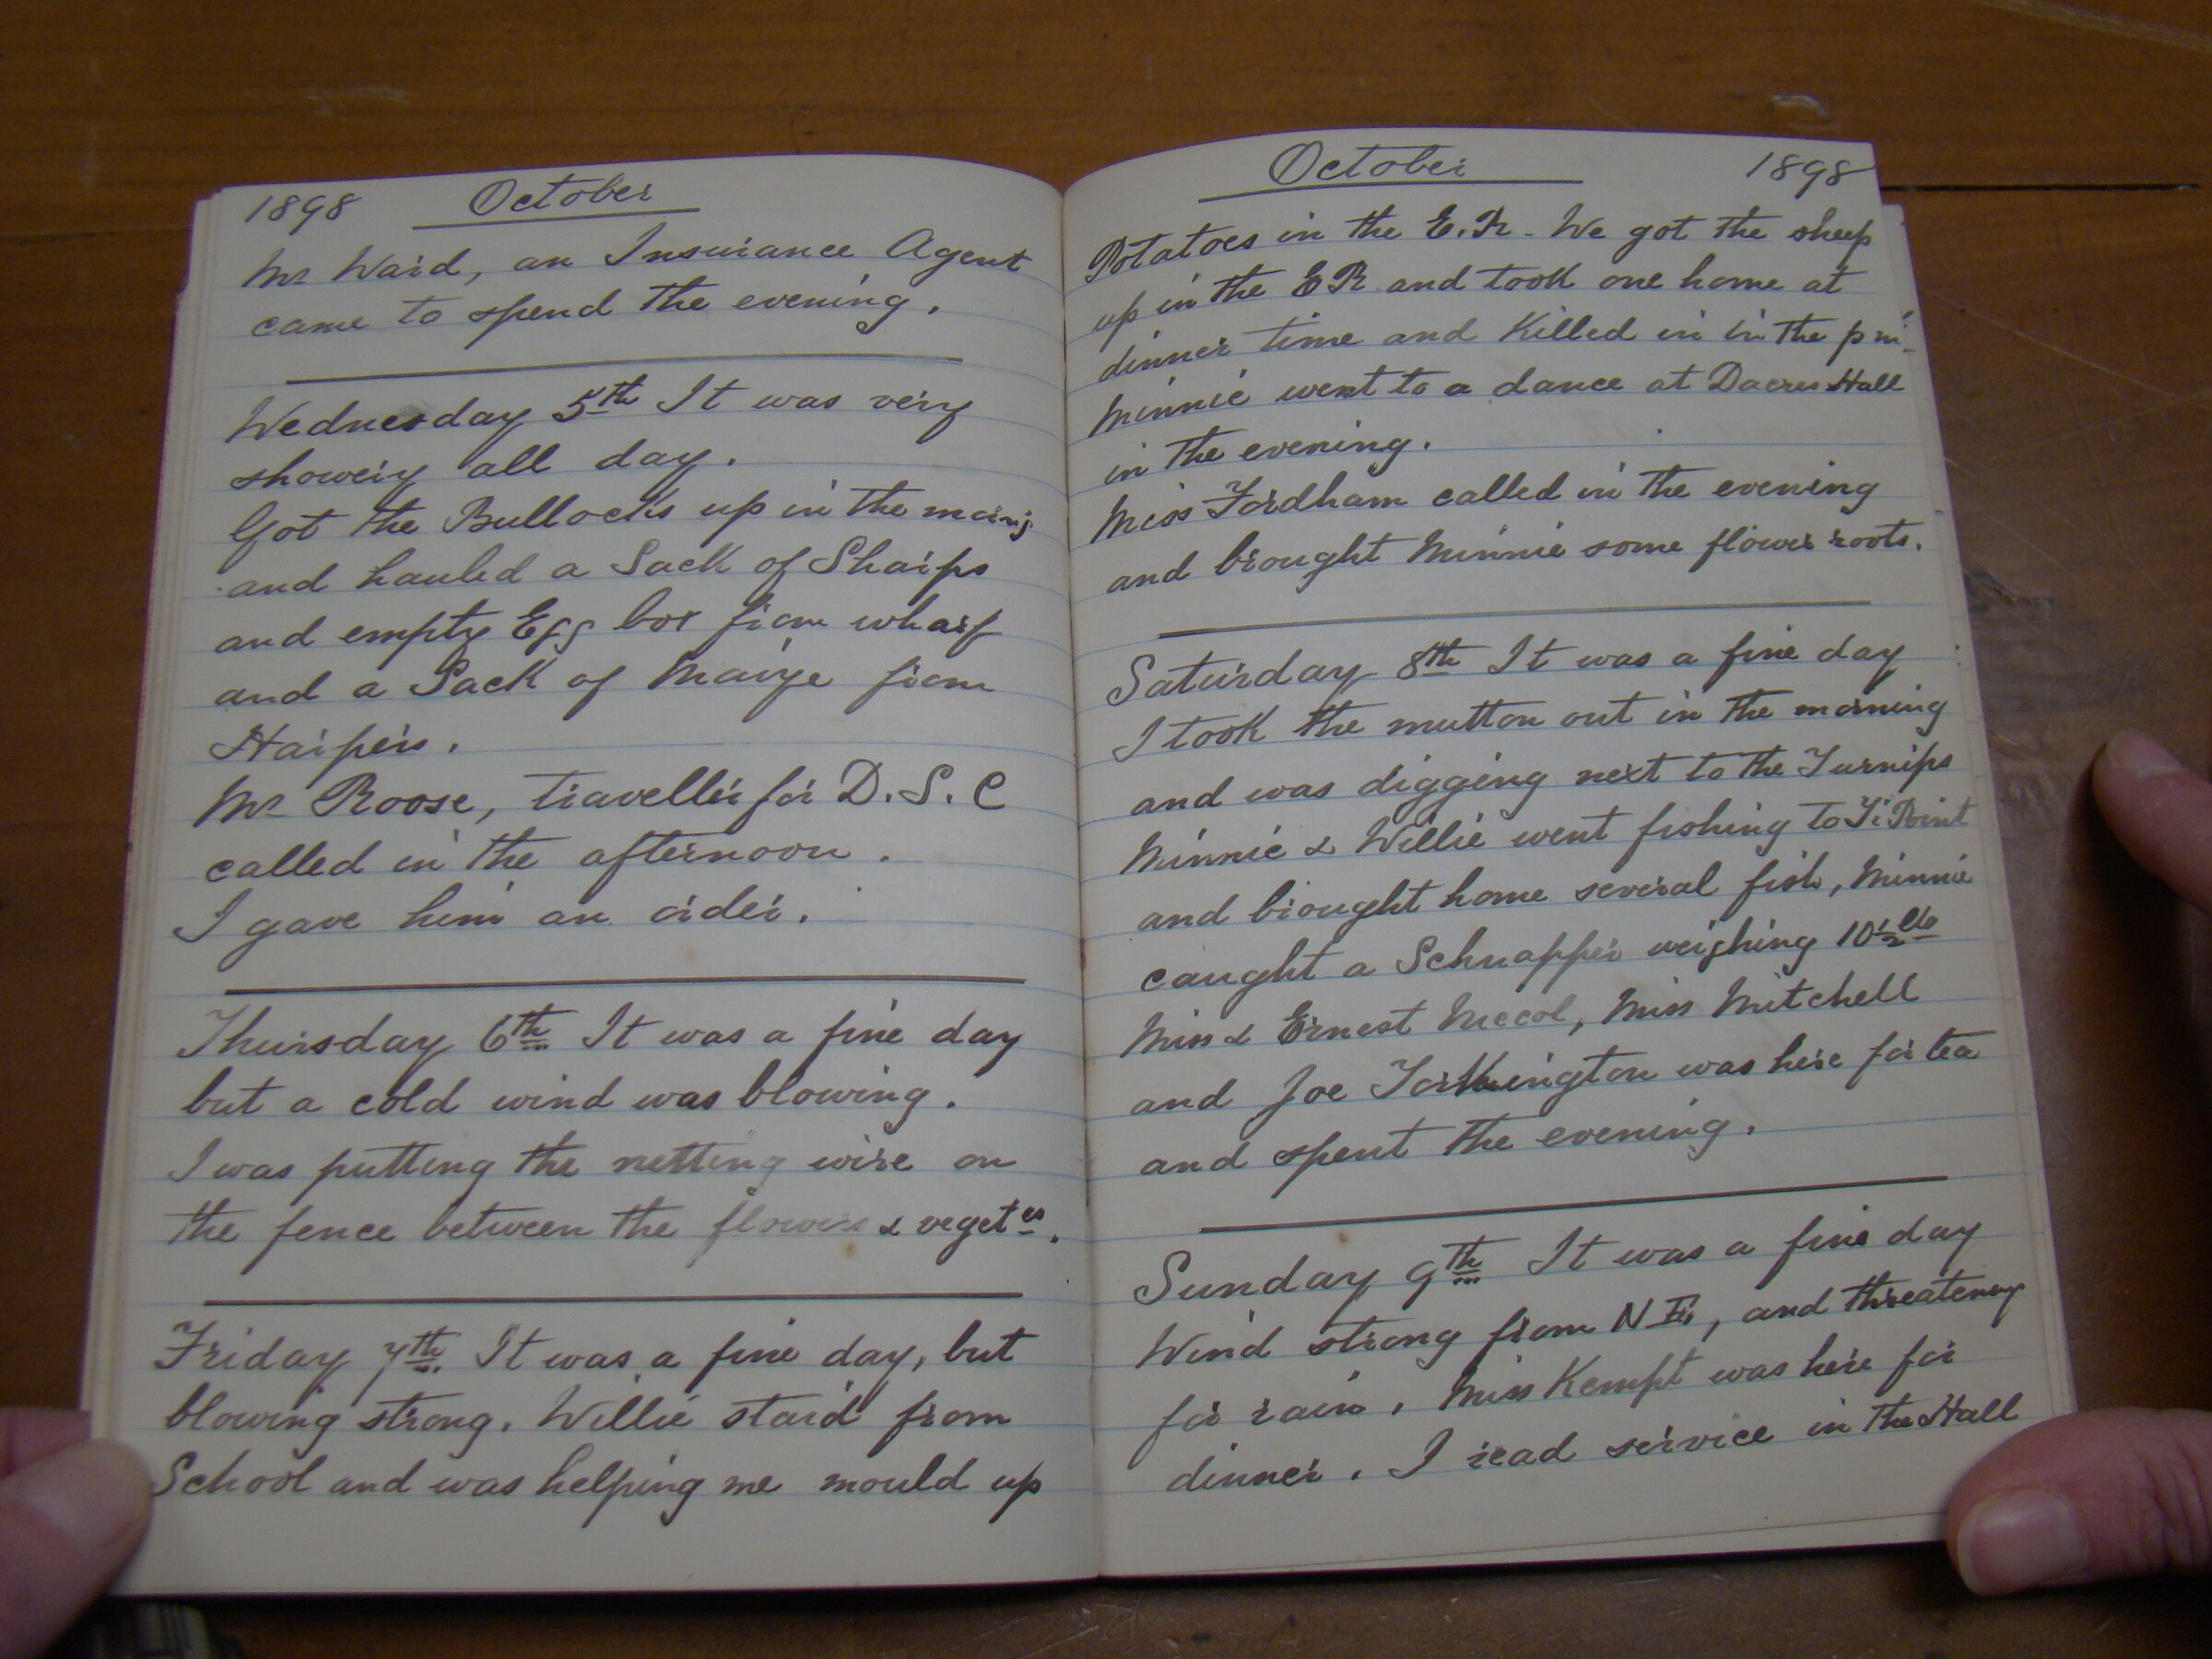 1898 October
Mr Ward, an Insurance Agent
came to spend the evening.
Wednesday 5th It was very
showery all day.
Got the Bullocks up in the morng
and hauled a Sack of Sharps
and empty Egg box from wharf
and a Sack of Maize from
Harpers.
Mr Roose, traveller for D.S.C
called in the afternoon.
I gave him an order.
Thursday 6th It was a fine day
but a cold wind was blowing.
I was putting the netting wire on
the fence between the flowers & veget es.
Friday 7th It was a fine day, but
blowing strong. Willie staid from
School and was helping me mould up
October 1898
Potatoes in the E.R - We got the sheep
up in the ER and took one home at
dinner time and Killed in in the pm.
Minnie went to a dance at Dacres Hall
in the evening.
Miss Fordham called in the evening
and brought Minnie some flower roots.
Saturday 8th It was a fine day
I took the mutton out in the morning
and was digging next to the Turnips
Minnie & Willie went fishing to Ti Point
and brought home several fish, Minnie
caught a Schnapper weighing 10½ lb
Miss & Ernest Meccol, Miss Mitchell
and Joe Torkington was here for tea
and spent the evening.
Sunday 9th It was a fine day
Wind strong from N E, and threateneng
for rain. Miss Kempt was here for
dinner. I read service in the Hall